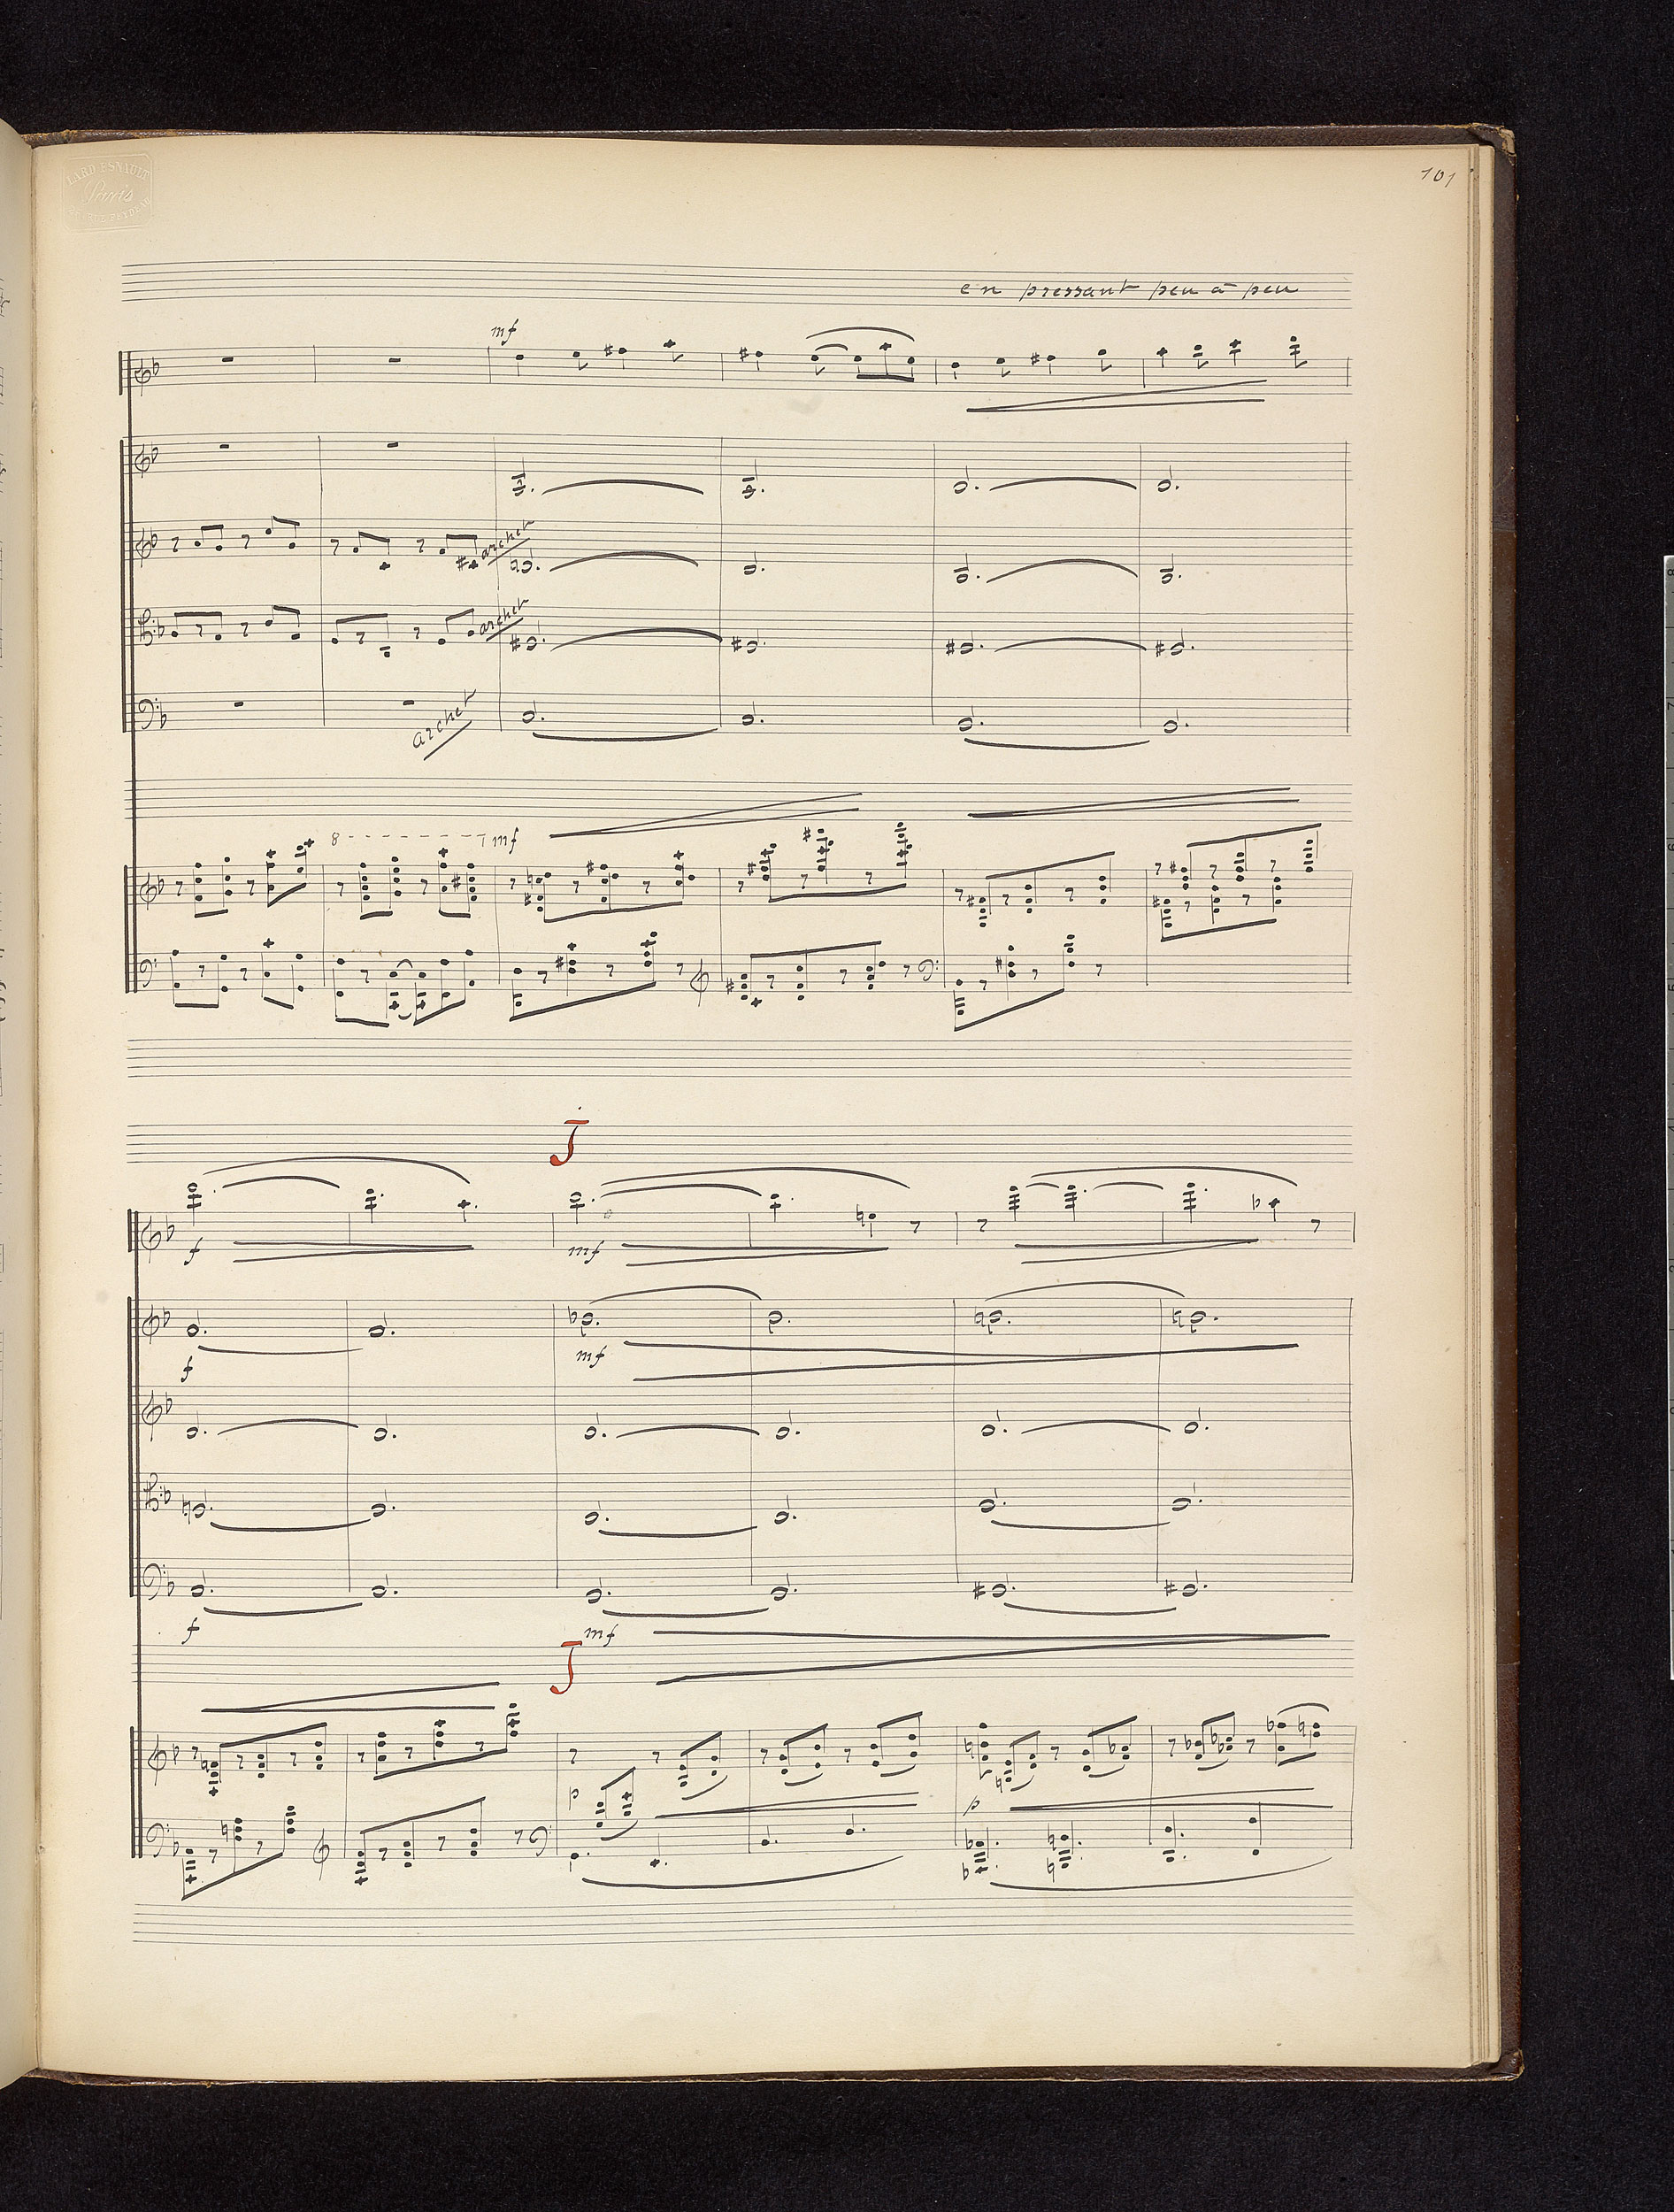 LARD ESNAULT
Paris
101
en pressant peu à peu
mf
archet
archet
archet
8
mf
J
f
mf
f
mf
f
mf
J
p
p